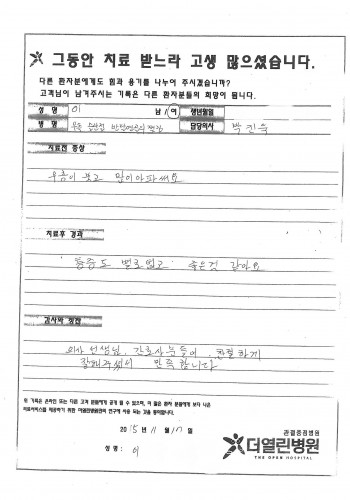 그동안 치료 받느라 고생 많으셨습니다.
다른 환자분에게도 힘과 용기를 나누어 주시겠습니까?
고객님이 남겨주시는 기록은 다른 환자분들의 희망이 됩니다.
성 명 이 남/여 생년월일
병 명 우측 담당의사 박진욱
치료전 증상
무릎이 붓고 많이아파써요
치료후 경과
통증도 별로없고 좋은것 같아요
감사와 칭찬
의사 선생님, 간호사분들이 친절하게
잘해주셔서 만족합니다
위 기록은 온라인 또는 다른 고객 분들에게 공개 될 수 있으며, 더 많은 환자 분들에게 보다 나은
의료서비스를 제공하기 위한 더열린병원의 연구에 사용 되는 것을 동의합니다.
2015년 11월 17일
성명: 이
관절중점병원
더열린병원
THE OPEN HOSPITAL